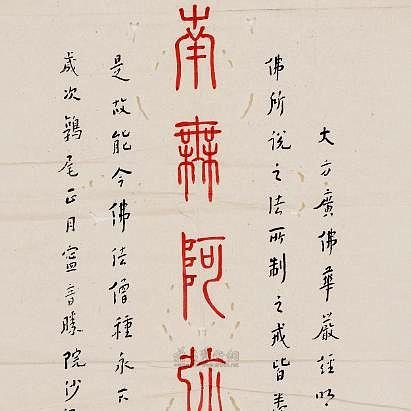 大方廣佛華嚴經明
佛所說之法所制之戒皆
南無阿弥
是故能令佛法僧種永不
歲次鶉尾正月勝院沙